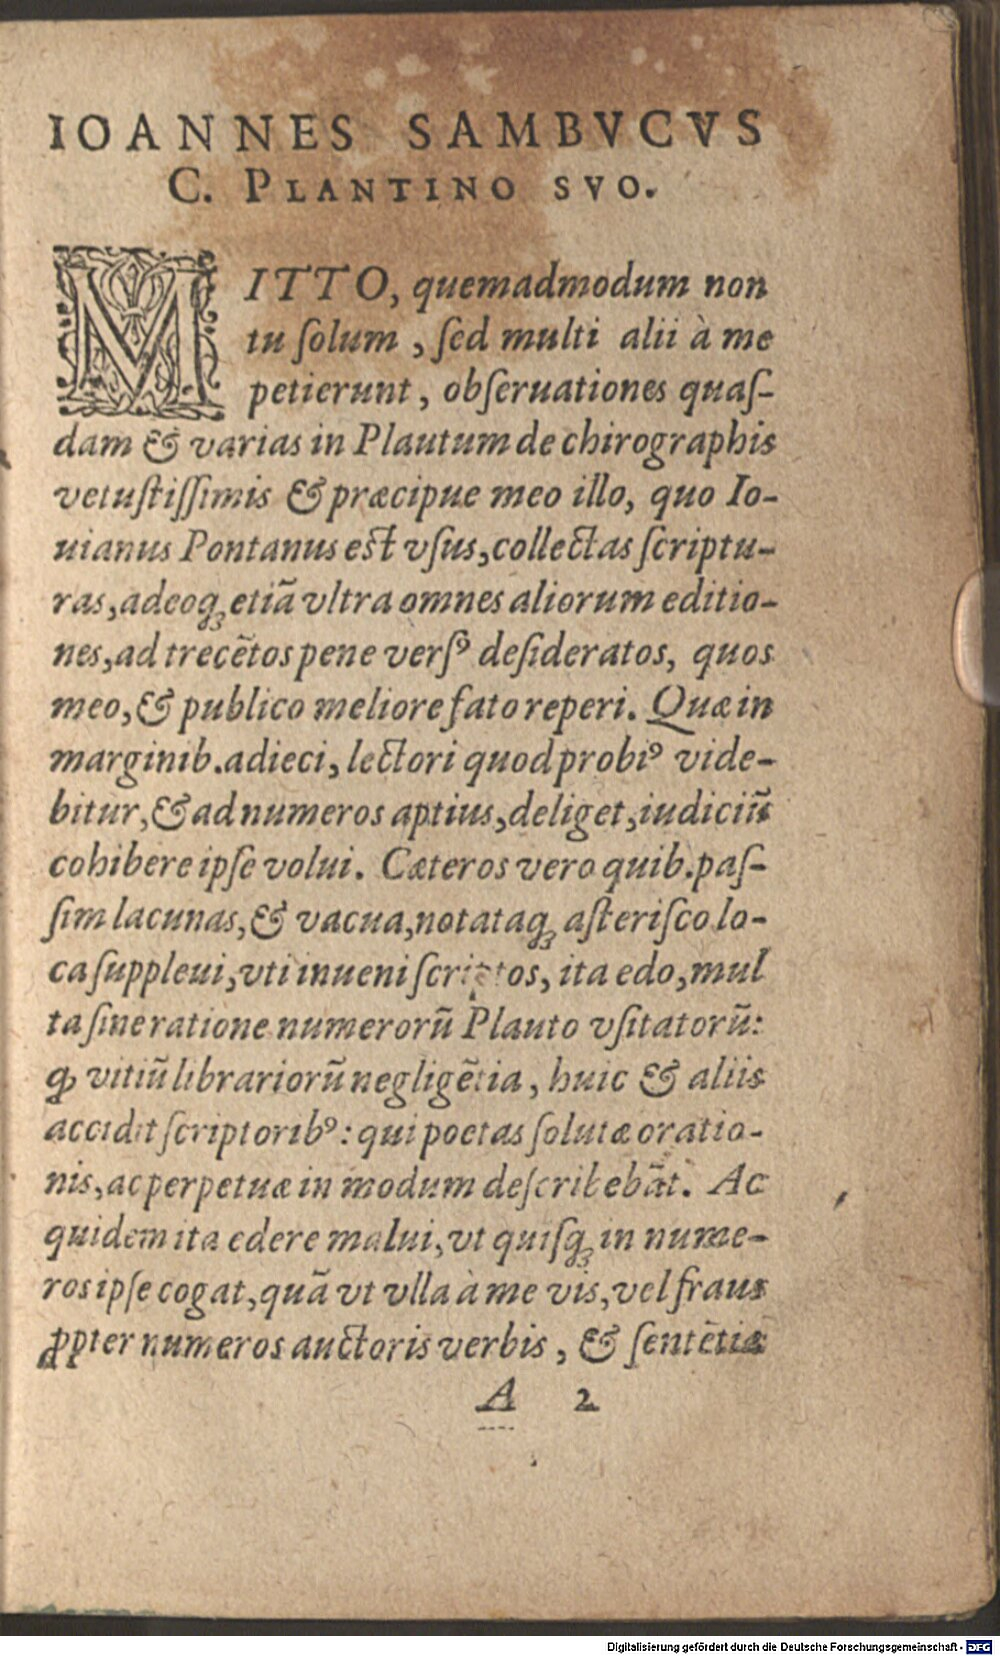 IOANNES SAMBVCVS
C. PLANTINO SVO.
MITTO, quemadmodum non
tu ſolum, ſed multi alii à me
petierunt, obſeruationes quaſ-
dam & varias in Plautum de chirographis
vetuſtiſſimis & præcipue meo illo, quo Io-
uianus Pontanus eſt vſus, collectas ſcriptu-
ras, adeoq́; etiã vltra omnes aliorum editio-
nes, ad trecẽtos pene verſꝰ deſideratos, quos
meo, & publico meliore fato reperi. Quæ in
marginib. adieci, lectori quod probiꝰ vide-
bitur, & ad numeros aptius, deliget, iudiciũ
cohibere ipſe volui. Cæteros vero quib. paſ-
ſim lacunas, & vacua, notataq; aſteriſco lo-
ca ſuppleui, vti inueni ſcriptos, ita edo, mul
ta ſine ratione numerorũ Plauto vſitatorũ:
ꝙ vitiũ librariorũ negligẽtia, huic & aliis
accidit ſcriptoribꝰ: qui poetas ſolutæ oratio-
nis, ac perpetuæ in modum deſcribebãt. Ac
quidem ita edere malui, vt quiſq; in nume-
ros ipſe cogat, quã vt vlla à me vis, vel fraus
ꝓpter numeros auctoris verbis, & ſentẽtiæ
A 2
Digitalisierung gefördert durch die Deutsche Forschungsgemeinschaft - DFG